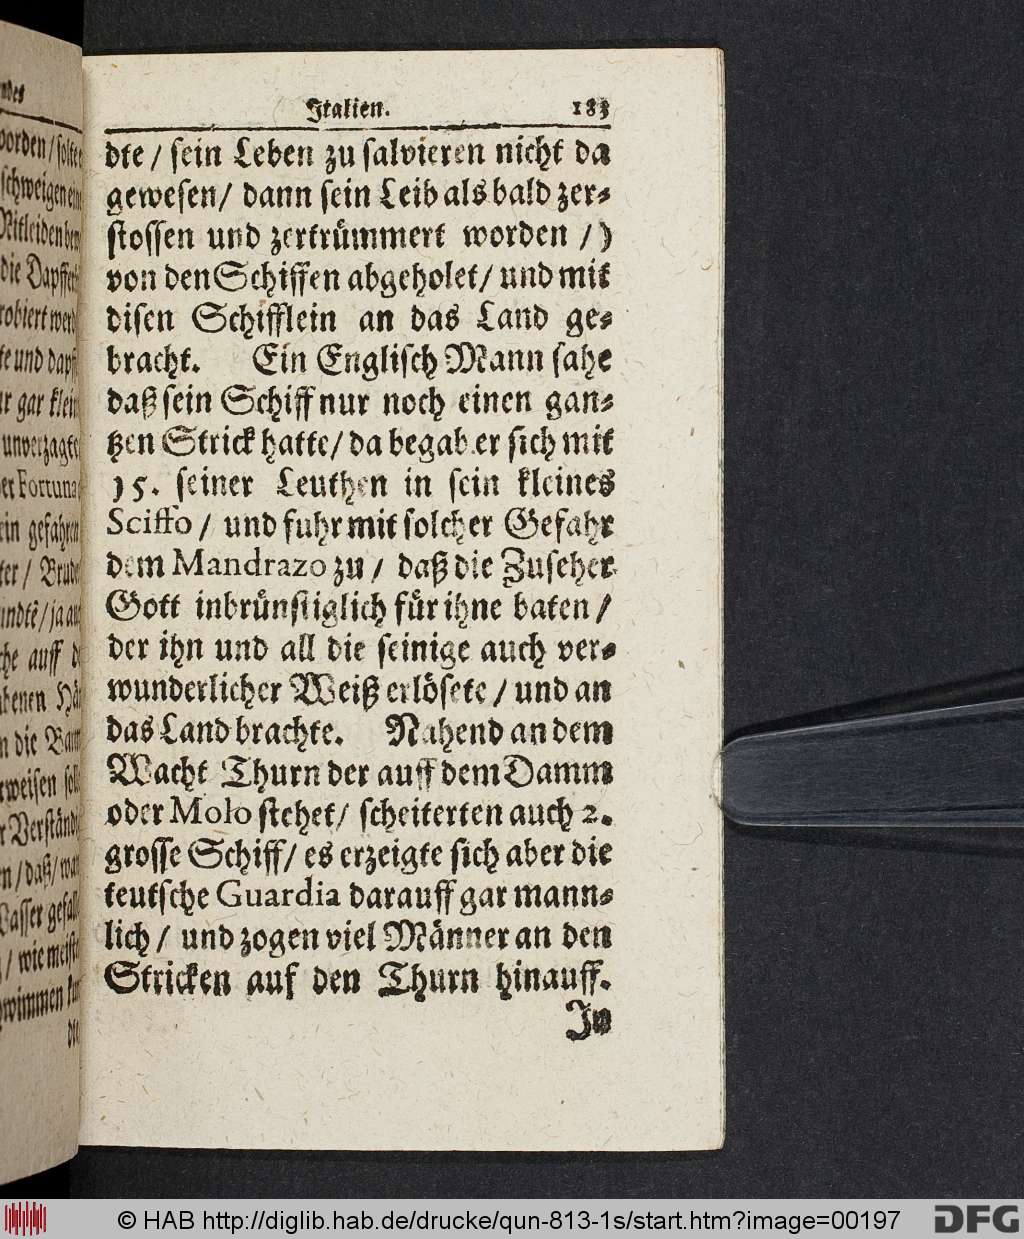 Italien. 183
dte / sein Leben zu salvieren nicht da
gewesen / dann sein Leib alsbald zer-
stossen und zertrümmert worden /)
von den Schiffen abgeholet / und mit
disen Schifflein an das Land ge-
bracht. Ein Englisch Mann sahe
daß sein Schiff nur noch einen gan-
tzen Strick hatte / da begab er sich mit
15. seiner Leuthen in sein kleines
Sciffo / und fuhr mit solcher Gefahr
dem Mandrazo zu / daß die Zuseher
Gott inbrünstiglich für ihne baten /
der ihn und all die seinige auch ver-
wunderlicher Weiß erlösete / und an
das Land brachte. Nahend an dem
Wacht Thurn der auff dem Damm
oder Molo stehet / scheiterten auch 2.
grosse Schiff / es erzeigte sich aber die
teutsche Guardia darauff gar mann-
lich / und zogen viel Männer an den
Stricken auf den Thurn hinauff.
In
© HAB http://diglib.hab.de/drucke/qun-813-1s/start.htm?image=00197
DFG